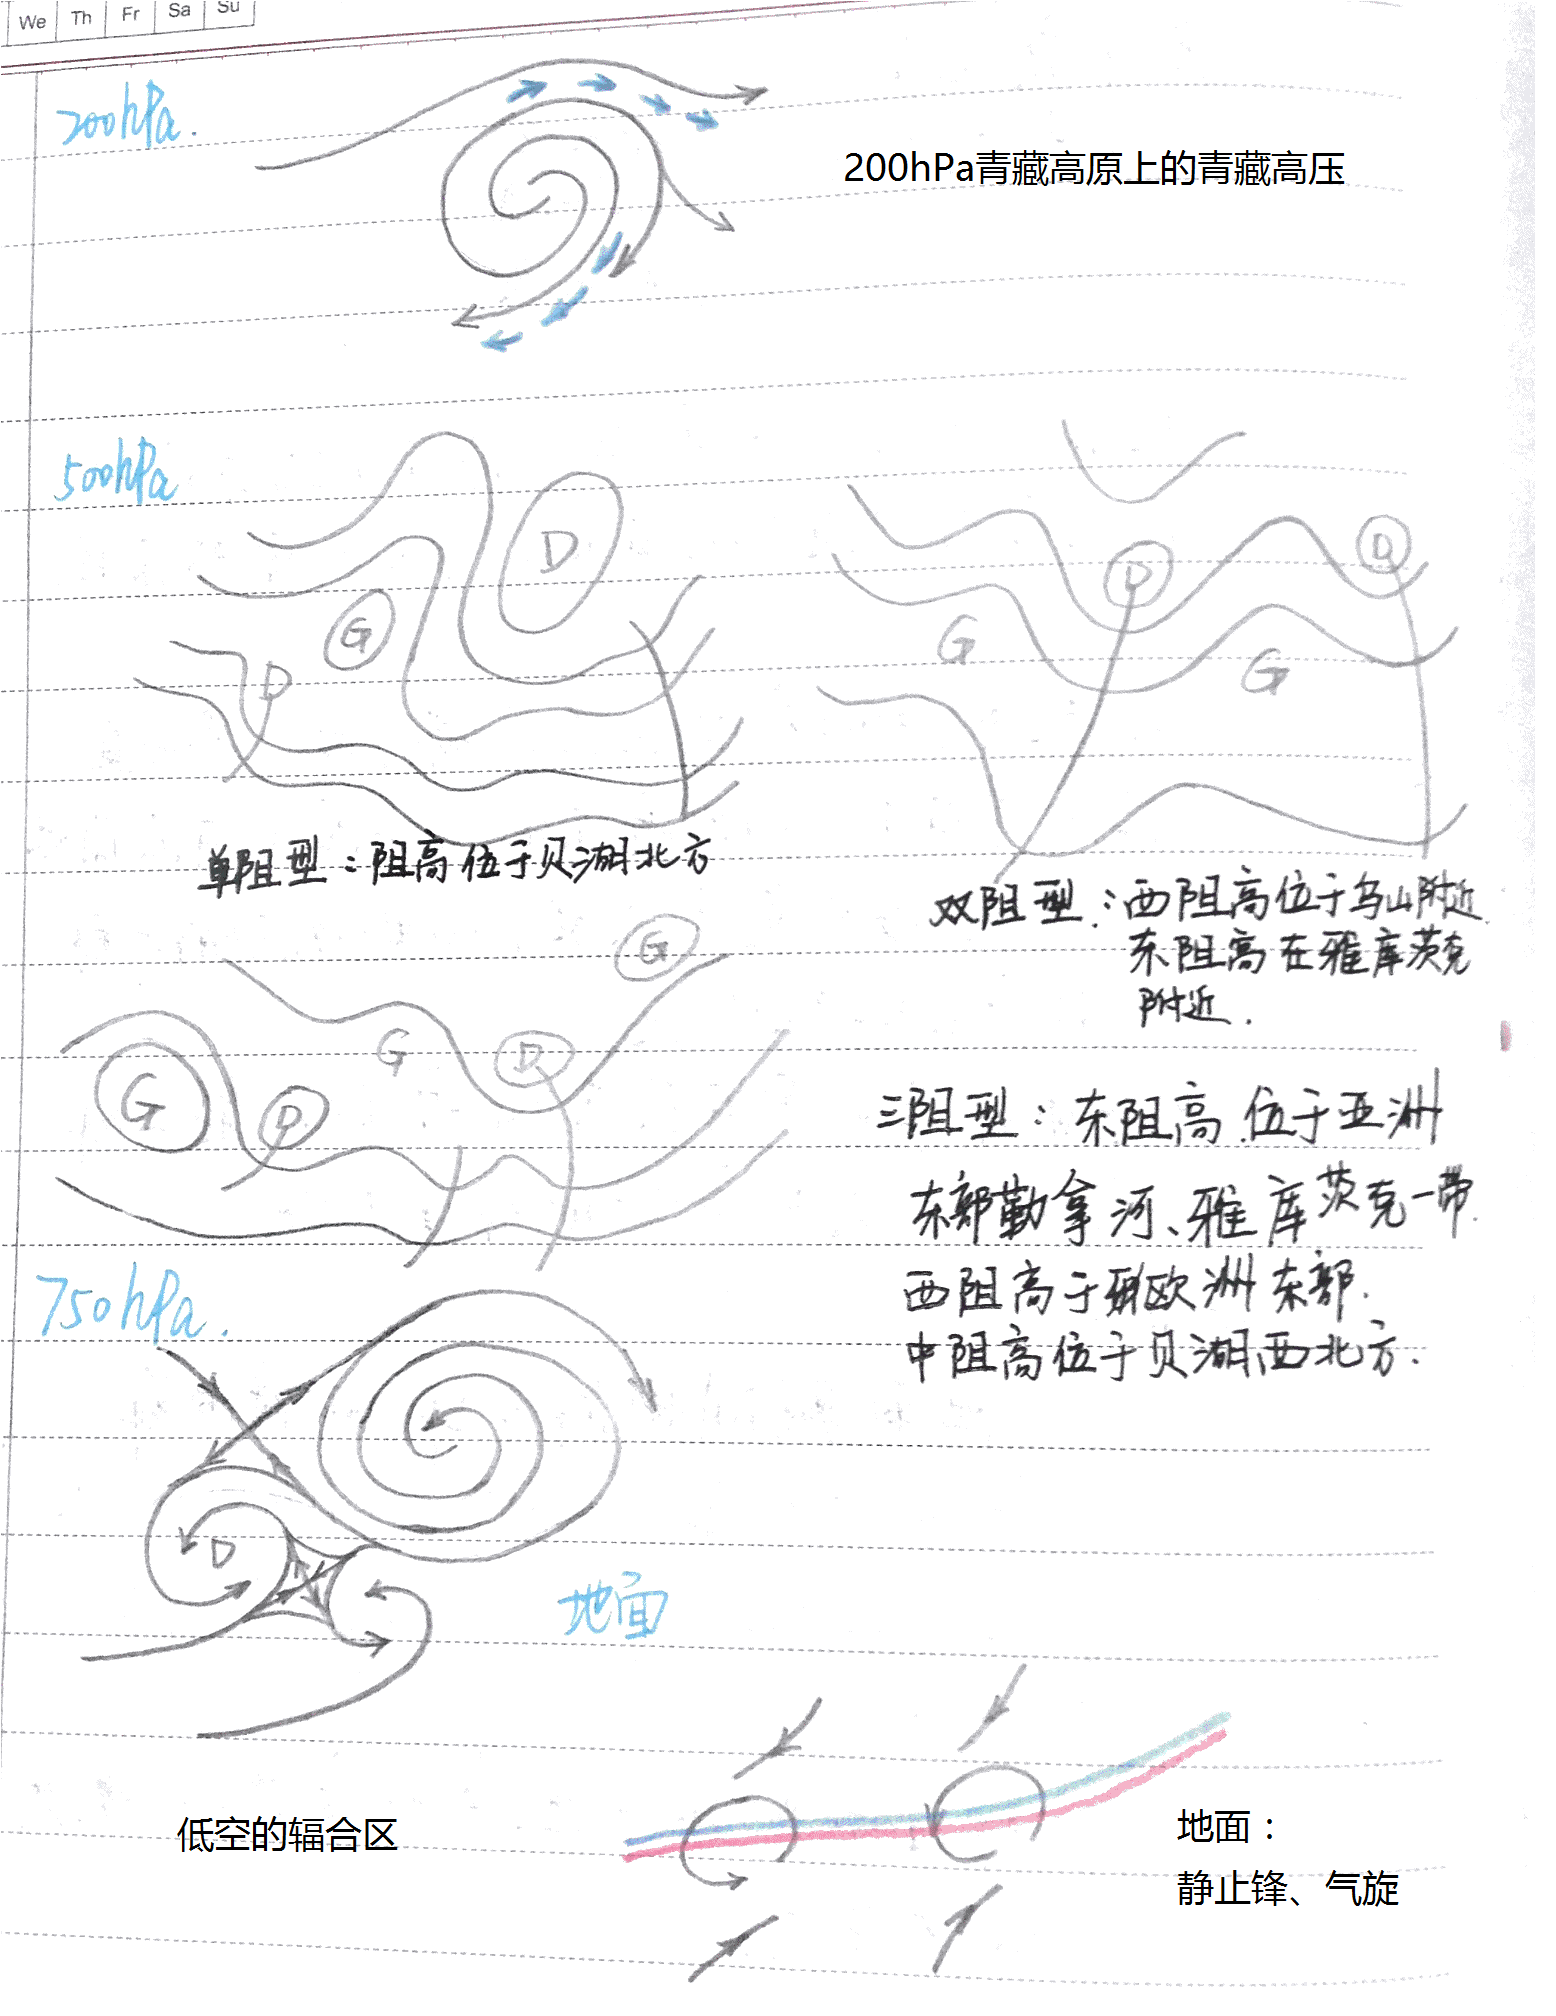 We Th Fr Sa Su
200hPa.
200hPa青藏高原上的青藏高压
500hPa
D
G
D
D
D
G
G
单阻型：阻高位于贝湖北方
双阻型：西阻高位于乌山附近
东阻高在雅库茨克
附近.
G
G
G
D
D
三阻型：东阻高位于亚洲
东部勒拿河、雅库茨克一带.
西阻高于欧洲东部.
中阻高位于贝湖西北方.
750hPa.
D
地面
低空的辐合区
地面：
静止锋、气旋